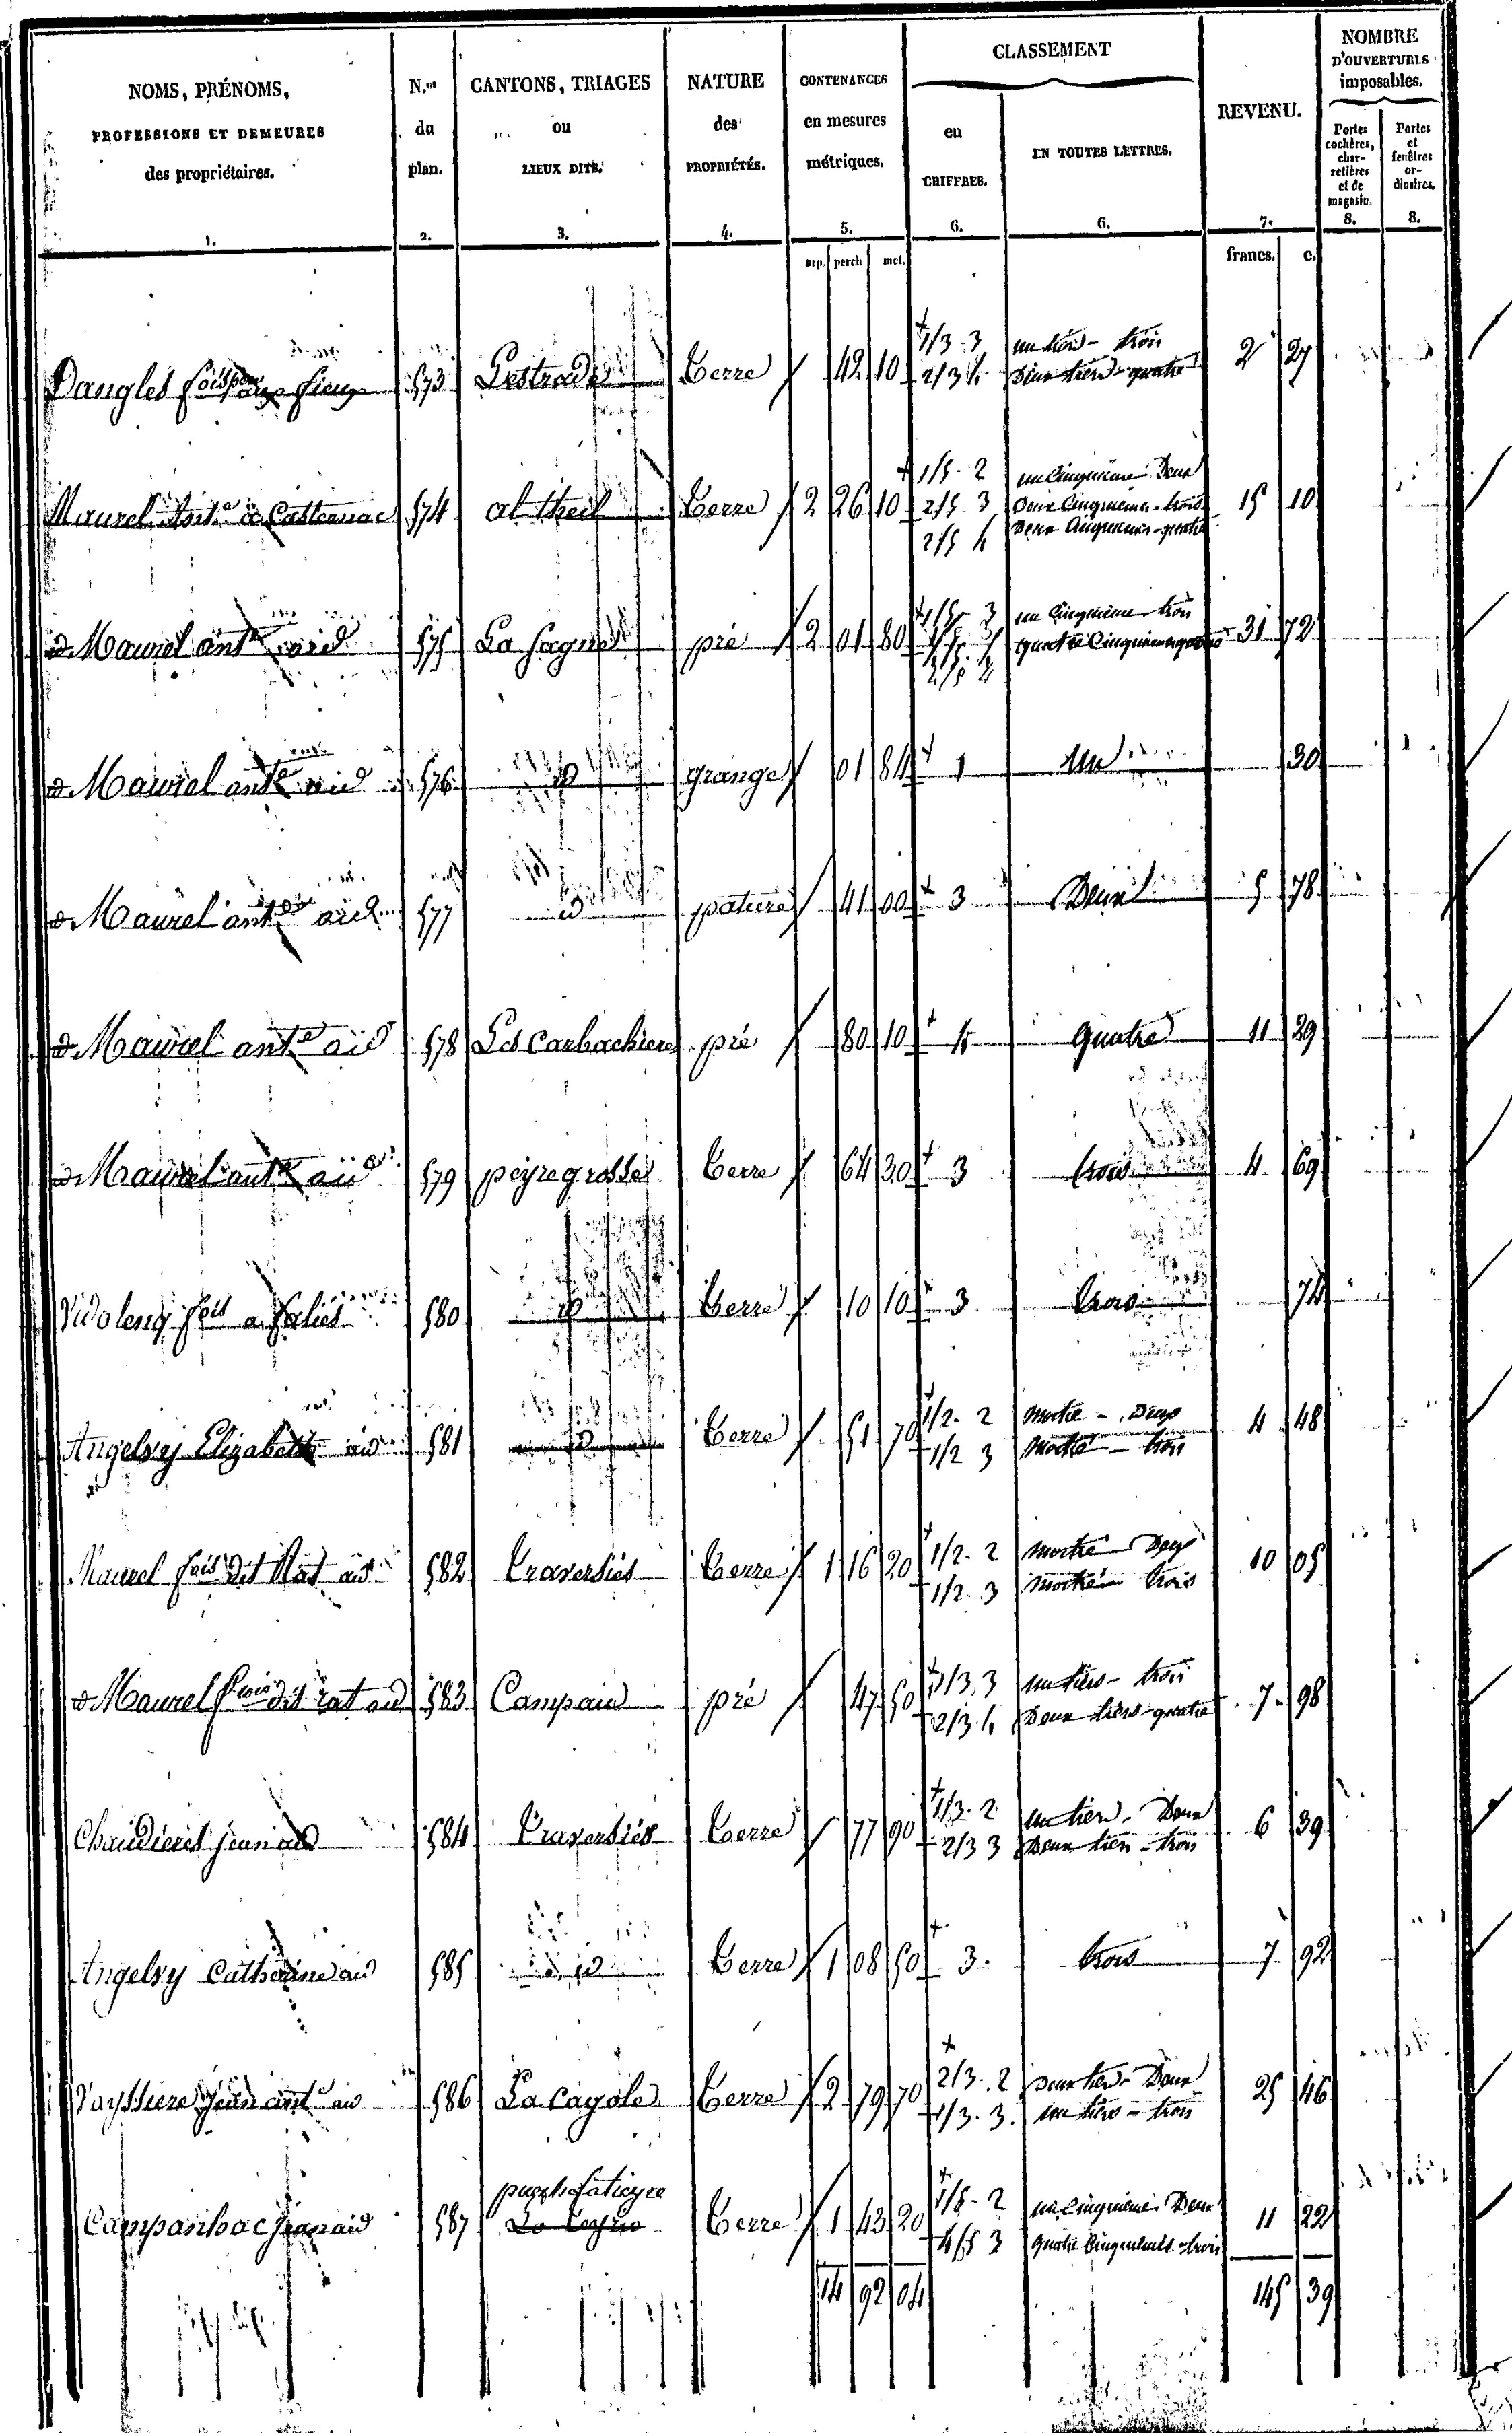 NOMS, PRÉNOMS,
PROFESSIONS ET DEMEURES
des propriétaires.
1.
N.os
du
plan.
2.
CANTONS, TRIAGES
ou
LIEUX DITS.
3.
NATURE
des
PROPRIÉTÉS.
4.
CONTENANCES
en mesures
métriques.
5.
arp. perch. met.
CLASSEMENT
en
CHIFFRES.
6.
EN TOUTES LETTRES.
6.
REVENU.
7.
francs. c.
NOMBRE
D'OUVERTURES
imposables.
Portes
cochères,
char-
retières
et de
magasin.
8.
Portes
et
fenêtres
or-
dinaires.
8.
Dangles fois 573 Lestrade Terre 42 10 1/3 3 un tiers - trois 2 27
2/3 4 Deux tiers - quatre
Maurel Ante à 574 al theil Terre 2 26 10 1/5 2 un Cinquième Deux 15 10
2/5 3 Deux Cinquièmes - trois
2/5 4 Deux Cinquièmes - quatre
d Maurel ante aid 575 La Sagne pré 2 01 80 1/5 3 un Cinquième trois 31 72
quatre Cinquièmes
d Maurel ante aid 576 id grange 01 84 1 un 30
d Maurel ante aid 577 id pature 41 00 3 Deux 5 78
d Maurel ante aid 578 Les Carbachieres pré 80 10 4 quatre 11 29
d Maurel ante aid 579 peyregrosse Terre 64 30 3 trois 4 69
Vidalenq fois a falies 580 id Terre 10 10 3 trois 74
Angelvy Elizabeth aid 581 id Terre 51 70 1/2 2 moitié - Deux 4 48
1/2 3 moitié - trois
Maurel fois dit Rat aid 582 traversies Terre 1 16 20 1/2 2 moitié Deux 10 05
1/2 3 moitié trois
d Maurel fois dit rat aid 583 Campaid pré 47 50 1/3 3 un tiers - trois 7 98
2/3 4 Deux tiers - quatre
Chaudieres jean aid 584 traversies Terre 77 90 1/3 2 un tiers - Deux 6 39
2/3 3 Deux tiers - trois
Angelvy Catherine aid 585 id Terre 1 08 50 3 trois 7 92
Vayssiere jean ante aid 586 La Cayole Terre 2 79 70 2/3 2 Deux tiers - Deux 25 46
1/3 3 un tiers - trois
Campanhac jean aid 587 Terre 1 43 20 1/5 2 un Cinquième Deux 11 22
4/5 3 quatre Cinquièmes - trois
14 92 04 145 39